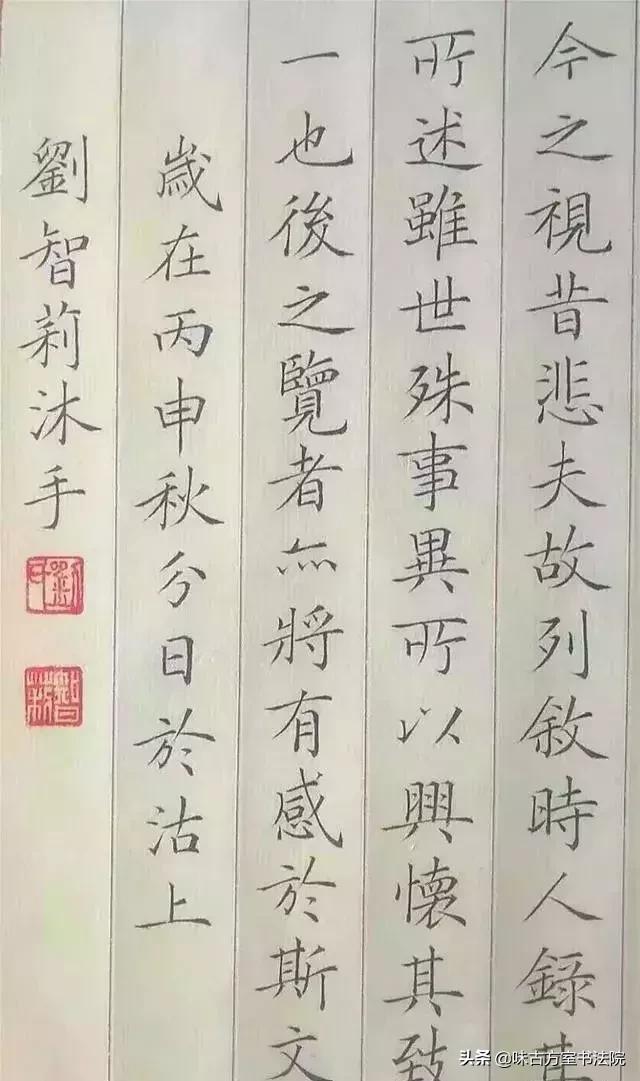 今之視昔悲夫故列敘時人錄其
所述雖世殊事異所以興懷其致
一也後之覽者亦將有感於斯文
歲在丙申秋分日於沽上
劉智莉沐手
劉印
智莉
头条 @味古方室书法院